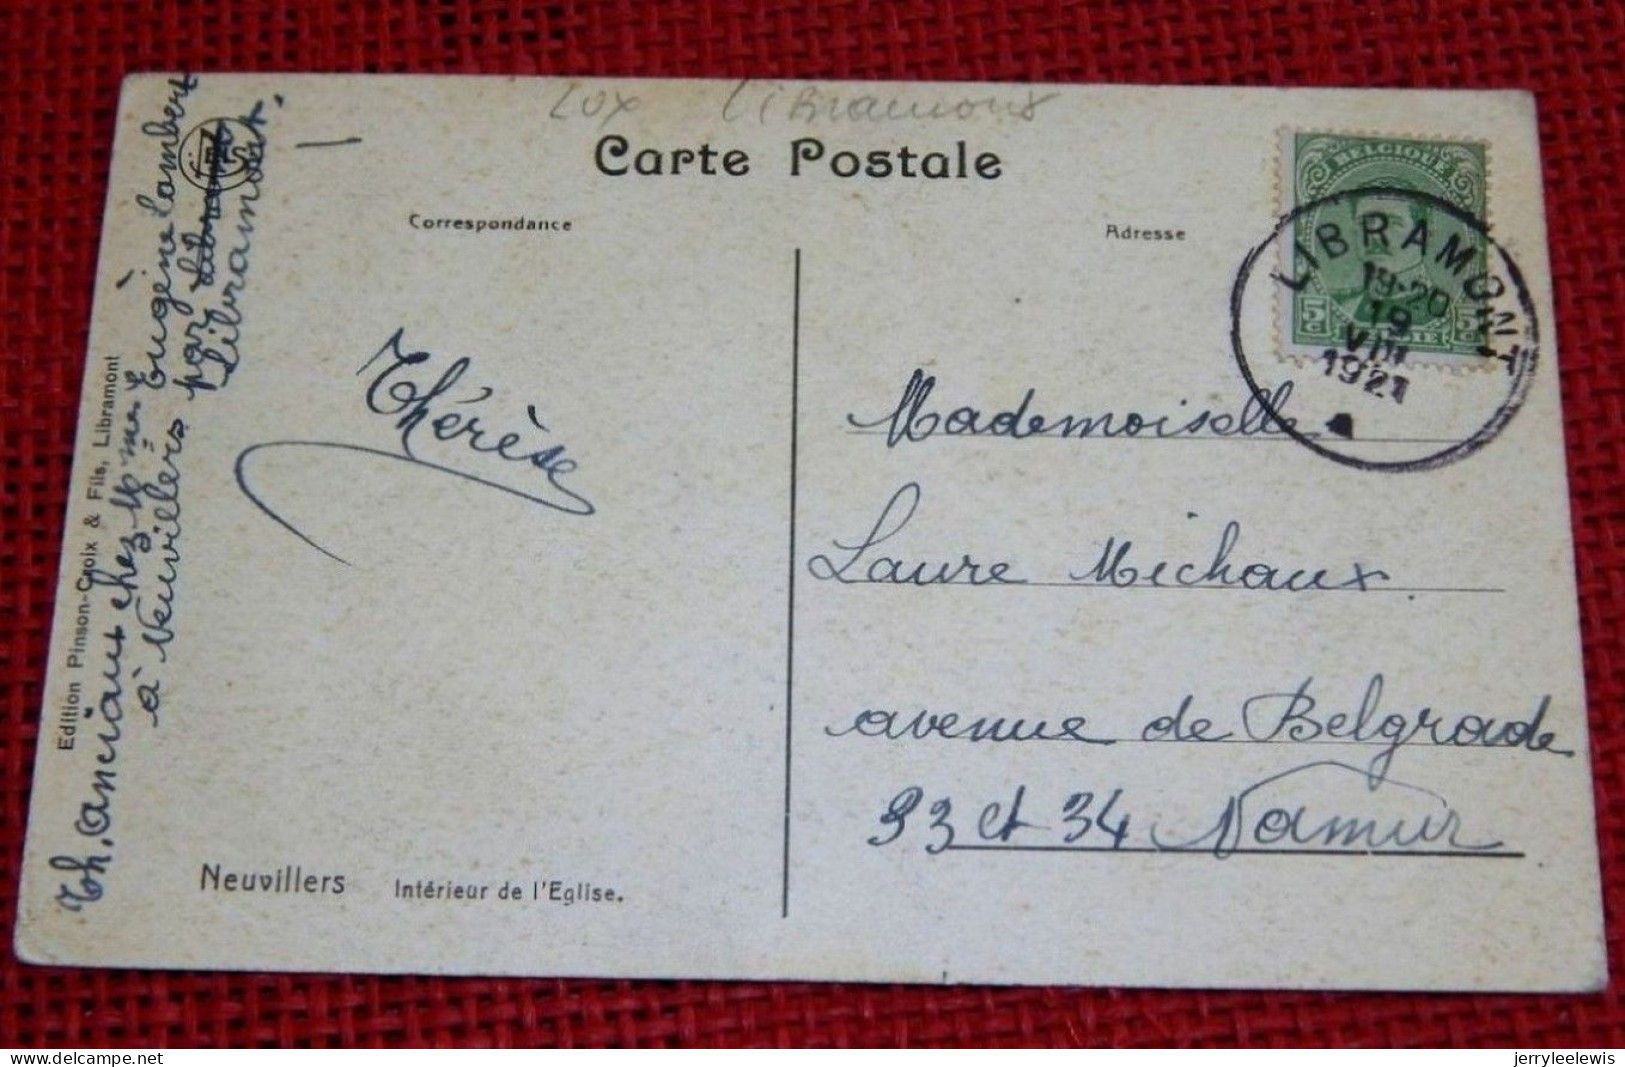 Lux Libramont
Carte Postale
Correspondance
Adresse
BELGIQUE
5c
5c
BELGIE
LIBRAMONT
19-20
19
VIII
1921
Thérèse
Mademoiselle
Laure Michaux
avenue de Belgrade
33 et 34 Namur
Neuvillers Intérieur de l'Eglise.
Edition Pinson-Croix & Fils, Libramont
Th. Anciaux chez Mme Eugène Lambert
à Neuvillers par Libramont
Libramont.